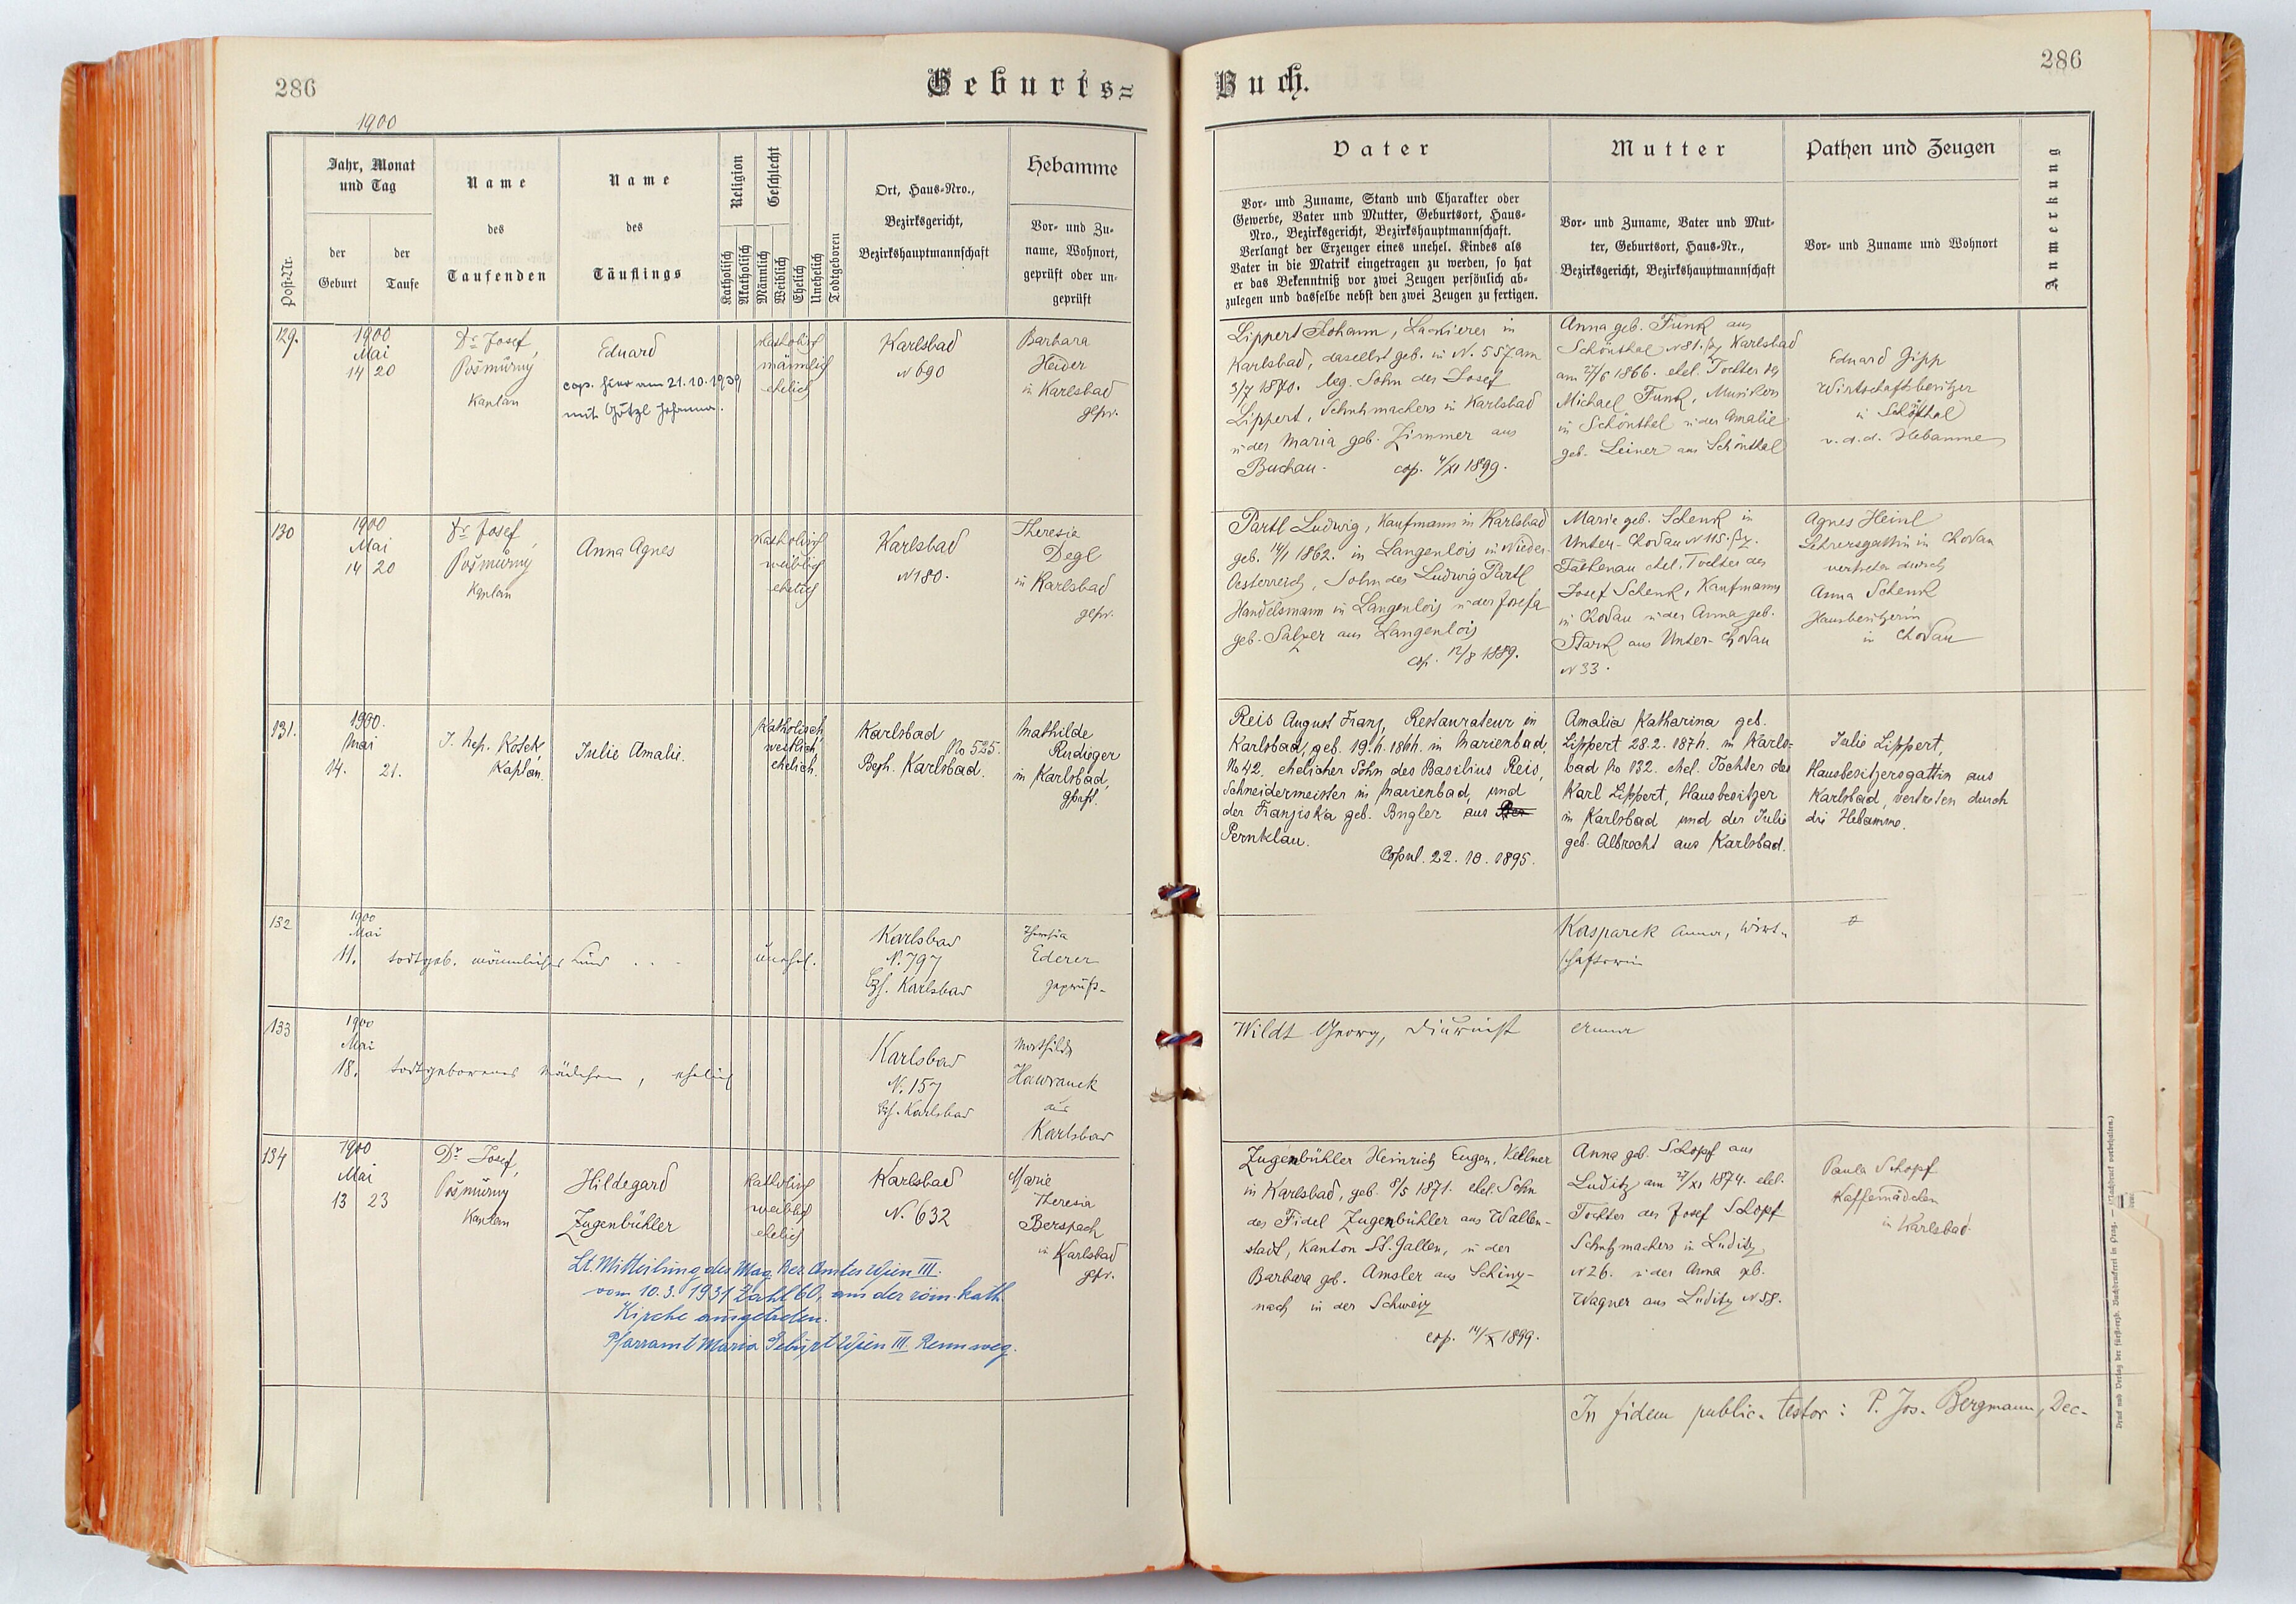 286
Geburts=
1900
Post-Nr.
Jahr, Monat
und Tag
der
Geburt
der
Taufe
Name
des
Taufenden
Name
des
Täuflings
Religion
Katholisch
Akatholisch
Geschlecht
Männlich
Weiblich
Ehelich
Unehelich
Todtgeboren
Ort, Haus-Nro.,
Bezirksgericht,
Bezirkshauptmannschaft
Hebamme
Vor- und Zu-
name, Wohnort,
geprüft oder un-
geprüft
129.
1900
Mai
14 20
Dr Josef
Pošmůrny
Kaplan
Eduard
cop. hier am 21.10.1939
mit Götzl Johanna.
katholisch
männlich
ehelich
Karlsbad
N 690
Barbara
Heider
in Karlsbad
gepr.
130
1900
Mai
14 20
Dr Josef
Pošmůrny
Kaplan
Anna Agnes
katholisch
weiblich
ehelich
Karlsbad
N 180.
Theresia
Degl
in Karlsbad
gepr.
131.
1900.
Mai
14. 21.
J. Nep. Košek,
Kaplan.
Julie Amalie.
Katholisch,
weiblich,
ehelich.
Karlsbad
No 525.
Bezh. Karlsbad.
Mathilde
Rudieger
in Karlsbad,
132
1900
Mai
11.
todtgeb. männliches Kind . . -
unehel.
Karlsbad
N. 797
Bzh. Karlsbad
Theresia
Ederer
geprüft
133
1900
Mai
18.
todtgeborenes Mädchen, ehelich
Karlsbad
N. 157
Bzh. Karlsbad
Mathilde
Hawranek
aus
Karlsbad
134
1900
Mai
13 23
Dr Josef,
Pošmůrny
Kaplan
Hildegard
Zugenbühler
katholisch
weiblich
ehelich
Karlsbad
N. 632
Marie
Theresia
Berspach
in Karlsbad
gepr.
Lt. Mitteilung des Mag. Bez. Amtes Wien III.
vom 10.3.1931 Zahl 60, aus der röm. kath.
Kirche ausgetreten.
Pfarramt Maria Geburt Wien III. Rennweg.
Buch.
286
Vater
Vor- und Zuname, Stand und Charakter oder
Gewerbe, Vater und Mutter, Geburtsort, Haus-
Nro., Bezirksgericht, Bezirkshauptmannschaft.
Verlangt der Erzeuger eines unehel. Kindes als
Vater in die Matrik eingetragen zu werden, so hat
er das Bekenntniß vor zwei Zeugen persönlich ab-
zulegen und dasselbe nebst den zwei Zeugen zu fertigen.
Mutter
Vor- und Zuname, Vater und Mut-
ter, Geburtsort, Haus-Nr.,
Bezirksgericht, Bezirkshauptmannschaft
Pathen und Zeugen
Vor- und Zuname und Wohnort
Anmerkung
Lippert Johann, Lackierer in
Karlsbad, daselbst geb. in N. 557 am
3/7 1870. leg. Sohn des Josef
Lippert, Schuhmachers in Karlsbad
u der Maria geb. Zimmer aus
Buchau. cop. 4/XI 1899.
Anna geb. Funk aus
Schönthal N 81. Bz. Karlsbad
am 27/6 1866. ehel. Tochter des
Michael Funk, Musikers
in Schönthal u der Amalie
geb. Leiner aus Schönthal
Eduard Gipp
Wirtschaftsbesitzer
in Schönthal
v. d. d. Hebamme
Partl Ludwig, Kaufmann in Karlsbad
geb. 14/1 1862. in Langenlois in Nieder-
Oesterreich, Sohn des Ludwig Partl
Handelsmann in Langenlois u der Josefa
geb. Salzer aus Langenlois
cop. 12/8 1889.
Marie geb. Schenk in
Unter-Chodau N 115. Bz.
Falkenau ehel. Tochter des
Josef Schenk, Kaufmanns
in Chodau u der Anna geb.
Stark aus Unter-Chodau
N 33.
Agnes Heinl
Lehrersgattin in Chodau
vertreten durch
Anna Schenk
Hausbesitzerin
in Chodau
Reis August Franz, Restaurateur in
Karlsbad, geb. 19.4.1864. in Marienbad,
No 42. ehelicher Sohn des Basilius Reis,
Schneidermeister in Marienbad, und
der Franziska geb. Bngler aus
Pernklau.
Copul. 22.10.1895.
Amalia Katharina geb.
Lippert 28.2.1874. in Karls-
bad No 132. ehel. Tochter des
Karl Lippert, Hausbesitzer
in Karlsbad und der Julie
geb. Albrecht aus Karlsbad.
Julie Lippert,
Hausbesitzersgattin aus
Karlsbad, vertreten durch
die Hebamme.
Kasparek Anna, Wirt-
schafterin
Wildt Georg, Diurnist
Anna
Zugenbühler Heinrich Eugen, Kellner
in Karlsbad, geb. 8/5 1871. ehel. Sohn
des Fidel Zugenbühler aus Wallen-
stadt, Kanton St. Gallen, u der
Barbara geb. Amsler aus Schinz-
nach in der Schweiz
cop. 14/X 1899.
Anna geb. Schopf aus
Luditz am 27/XI 1874. ehel.
Tochter des Josef Schopf
Schuhmachers in Luditz,
N 26. u der Anna geb.
Wagner aus Luditz N 58.
Paula Schopf
Kaffemädchen
in Karlsbad
In fidem public. testor: P. Jos. Bergmann, Dec.
Druck und Verlag der fürsterzb. Buchdruckerei in Prag. — (Nachdruck vorbehalten.)